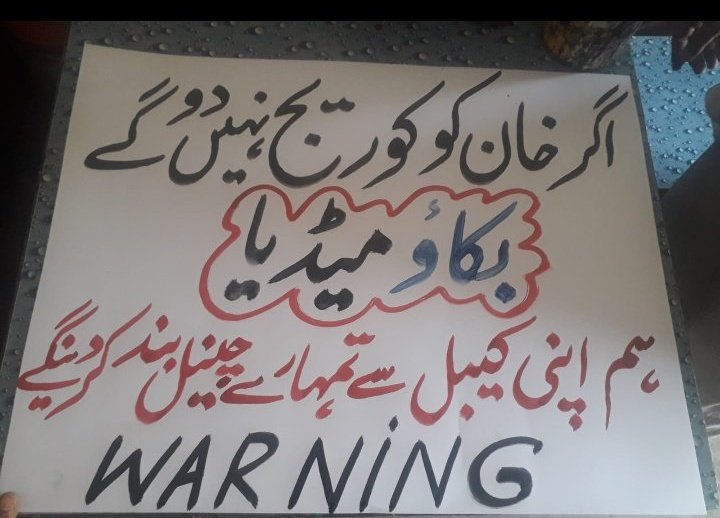 اگر خان کو کوریج نہیں دو گے
بکاؤ میڈیا
ہم اپنی کیبل سے تمہارے چینیل بند کر دینگے
WARNING